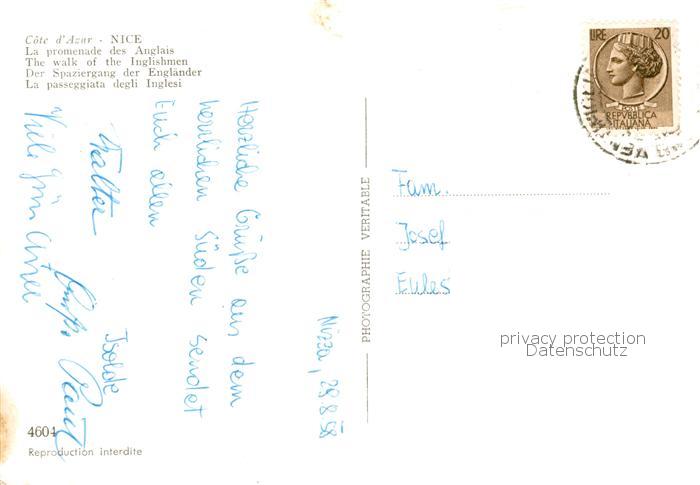 Côte d'Azur - NICE
La promenade des Anglais
The walk of the Inglishmen
Der Spaziergang der Engländer
La passeggiata degli Inglesi
Nizza, 29.8.58
Herzliche Grüße aus dem
herrlichen Süden sendet
Euch allen
Walter
Isolde
Viele
4604
Reproduction interdite
PHOTOGRAPHIE VERITABLE
LIRE 20
POSTE
REPVBBLICA
ITALIANA
Fam.
Josef
Eules
privacy protection
Datenschutz